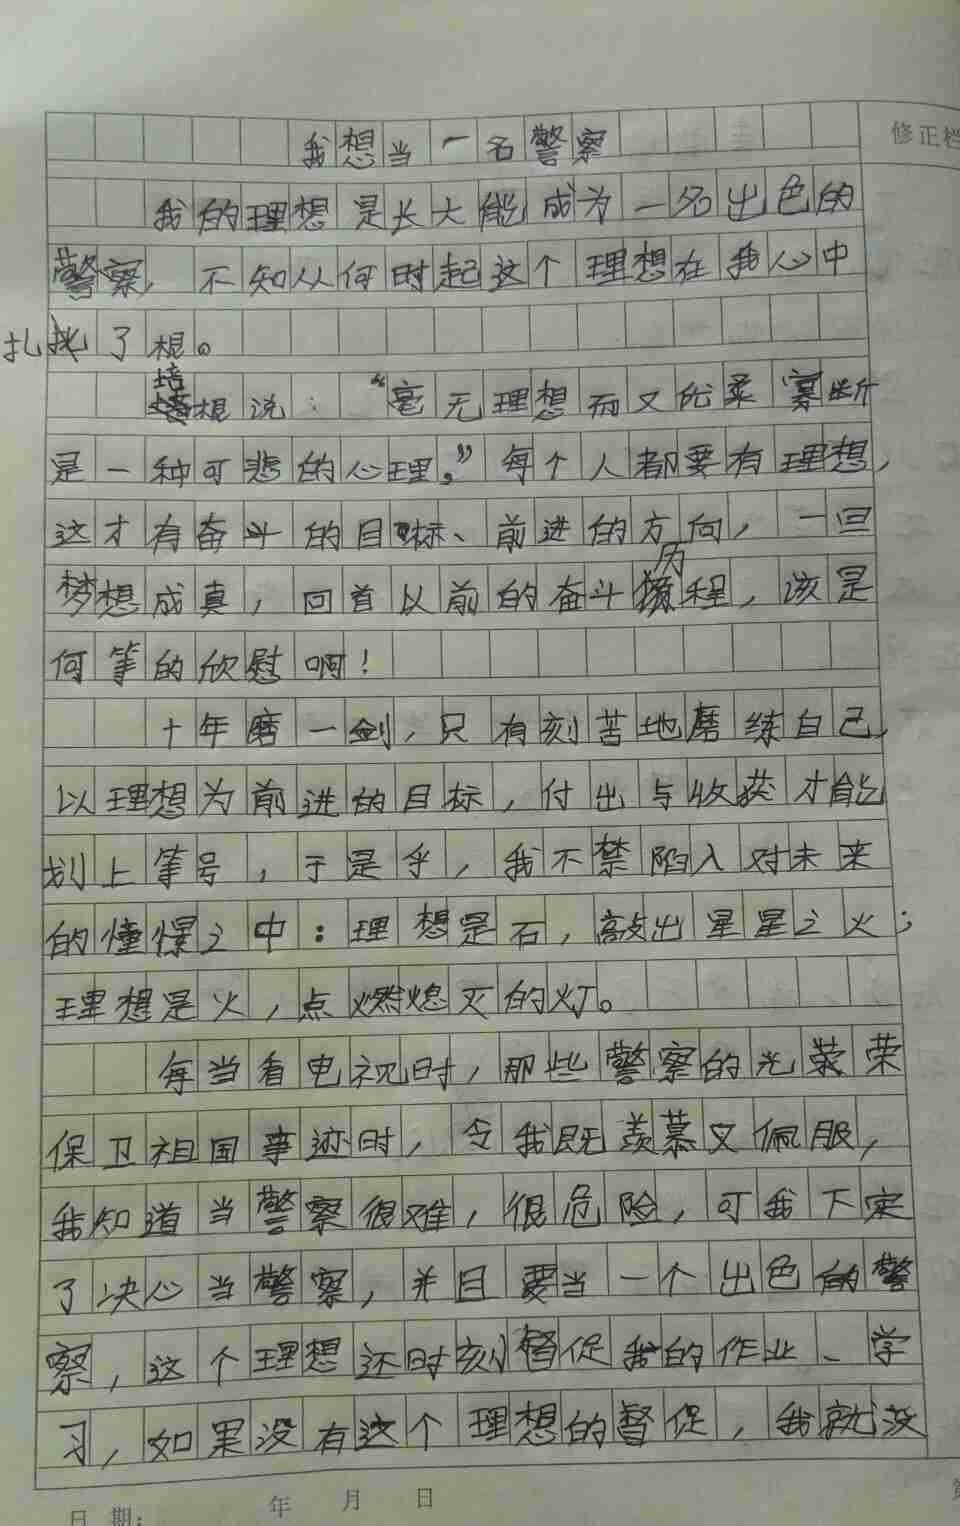 修正栏
我想当一名警察
我的理想是长大能成为一名出色的
警察，不知从何时起这个理想在我心中
扎了根。
培根说：“毫无理想而又优柔寡断
是一种可悲的心理。”每个人都要有理想，
这才有奋斗的目标、前进的方向，一旦
梦想成真，回首以前的奋斗历程，该是
何等的欣慰啊！
十年磨一剑，只有刻苦地磨练自己，
以理想为前进的目标，付出与收获才能
划上等号，于是乎，我不禁陷入对未来
的憧憬之中：理想是石，敲出星星之火；
理想是火，点燃熄灭的灯。
每当看电视时，那些警察的光荣
保卫祖国事迹时，令我既羡慕又佩服，
我知道当警察很难，很危险，可我下定
了决心当警察，并且要当一个出色的警
察，这个理想还时刻督促我的作业、学
习，如果没有这个理想的督促，我就没
日期： 年 月 日